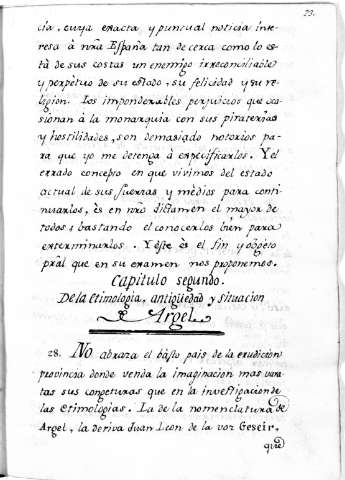 23.
cia, cuya exacta y puntual noticia inte-
resa à nrâ España tan de cerca como lo es-
tà de sus costas un enemigo irreconciliable
y perpètuo de su estado, su felicidad y su re-
legion. Los imponderables perjuicios que oca-
sionan à la monarquia con sus piraterias
y hostilidades, son demasiado notorios pa-
ra que yo me detenga à especificarlos. Y el
errado concepto en que vivimos del estado
actual de sus fuerzas y mèdios para conti-
nuarlos, ès en nrô dictamen el mayor de
todos; bastando el conocerlos bièn para
exterminarlos. Y èste ès el fin y obgeto
prâl que en su examen nos proponemos.
Capitulo segundo.
De la Etimologia, antigüedad y situacion
de Argel.
28. No abraza el basto pais de la erudicion
provincia donde venda la imaginacion mas vara-
tas sus congeturas que en la investigacion de
las etimologias. La de la nomenclatura de
Argel, la deriva Juan Leon de la voz Geseir.
que